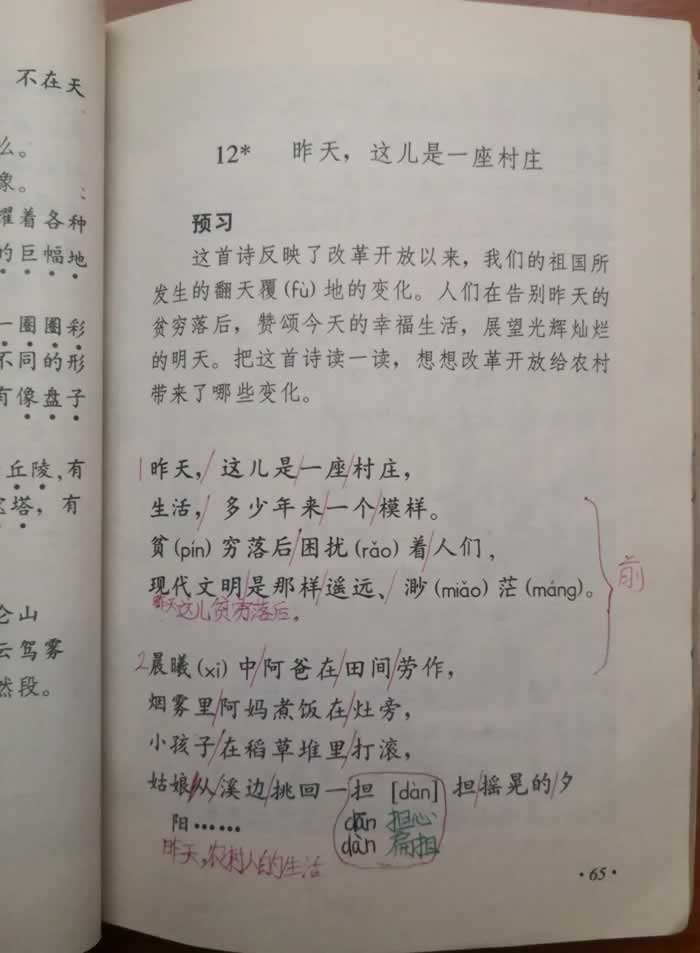 不在天
么。
象。
耀着各种
的巨幅地
一圈圈彩
不同的形
有像盘子
丘陵,有
塔，有
仑山
云驾雾
然段。
12* 昨天，这儿是一座村庄
预习
这首诗反映了改革开放以来，我们的祖国所
发生的翻天覆(fù)地的变化。人们在告别昨天的
贫穷落后，赞颂今天的幸福生活，展望光辉灿烂
的明天。把这首诗读一读，想想改革开放给农村
带来了哪些变化。
1昨天，/这儿是/一座/村庄，
生活，/多少年来/一个/模样。
贫(pín)穷落后/困扰(rǎo)着/人们，
现代文明/是那样/遥远、/渺(miǎo)茫(máng)。
昨天这儿贫穷落后。
前
2晨曦(xī)中/阿爸在/田间/劳作，
烟雾里/阿妈煮饭在/灶旁，
小孩子/在稻草堆里/打滚，
姑娘/从/溪边/挑回一担[dàn]担/摇晃的/夕
阳……
dān 担心
dàn 扁担
昨天,农村人的生活
·65·